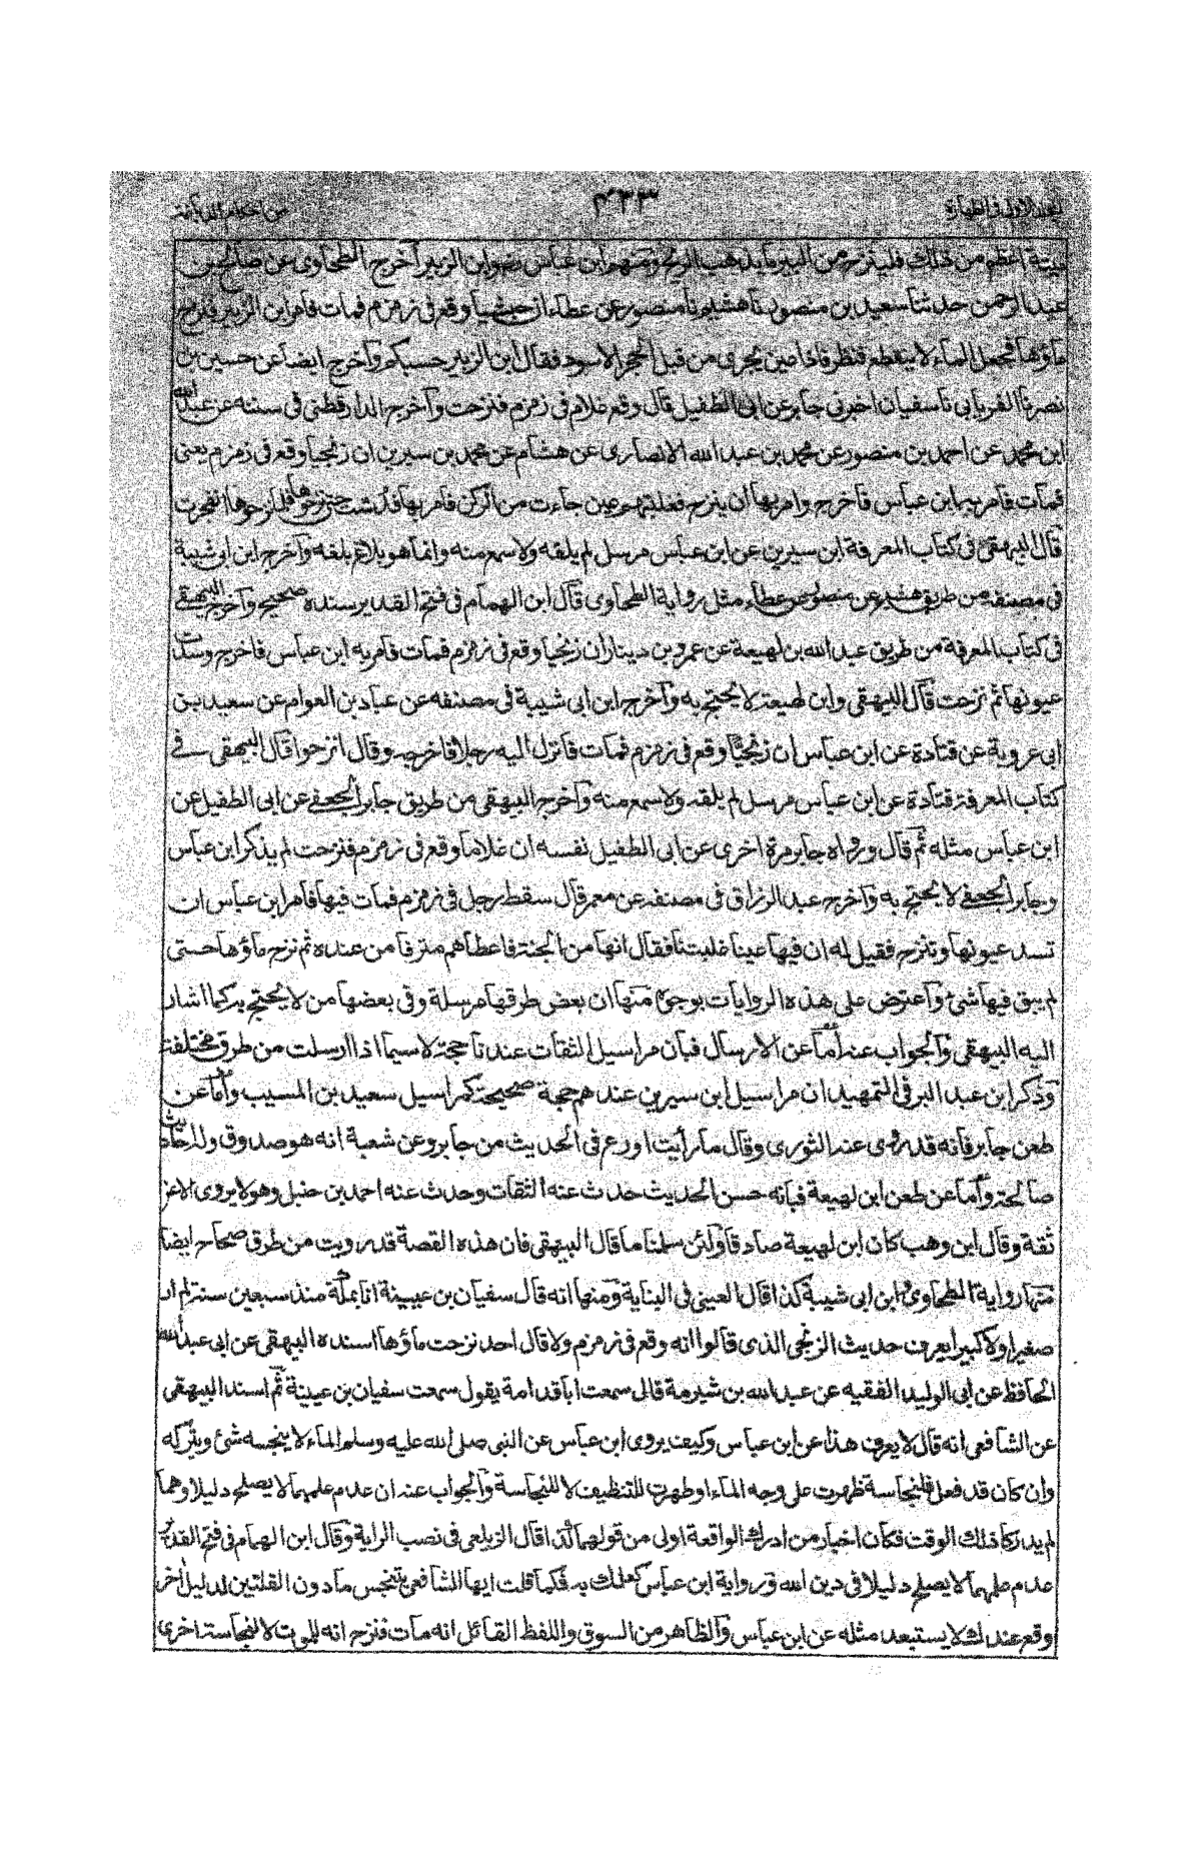 المجلد الاول فى الطهارة
٤٣٣
من احكام
ميتة اعظم من ذلك فلينزح من البير ما يذهب الريح ومنهم ابن عباس وابن الزبير اخرج الطحاوى عن صالح بن
عبد الرحمن حدثنا سعيد بن منصور نا هشيم نا منصور عن عطاء ان حبشيا وقع فى زمزم فمات فامر ابن الزبير فنزح
ماؤها فجعل الماء لا ينقطع فنظر فاذا عين تجرى من قبل الحجر الاسود فقال ابن الزبير حسبكم وآخرج ايضا عن حسين بن
نصر نا الفريابى نا سفيان اخبرنى جابر عن ابى الطفيل قال وقع غلام فى زمزم فنزحت وآخرج الدارقطنى فى سننه عن عبد الله
ابن محمد عن احمد بن منصور عن محمد بن عبد الله الانصارى عن هشام عن محمد بن سيرين ان زنجيا وقع فى زمزم يعنى
فمات فامر به ابن عباس فآخرج وامر بها ان ينزح فغلبتهم عين جاءت من الركن فامر بها فدست حتى نزحوها فلما نزحوها انفجرت
قال البيهقى فى كتاب المعرفة ابن سيرين عن ابن عباس مرسل لم يلقه ولا سمع منه وانما هو بلاغ بلغه وآخرج ابن ابى شيبة
فى مصنفه من طريق هشيم عن منصور عن عطاء مثل رواية الطحاوى قال ابن الهمام فى فتح القدير سنده صحيح وآخرج البيهقى
فى كتاب المعرفة من طريق عبد الله بن لهيعة عن عمرو بن دينار ان زنجيا وقع فى زمزم فمات فامر به ابن عباس فاخرج وسدت
عيونها ثم نزحت قال البيهقى وابن لهيعة لا يحتج به وآخرج ابن ابى شيبة فى مصنفه عن عباد بن العوام عن سعيد بن
ابى عروبة عن قتادة عن ابن عباس ان زنجيا وقع فى زمزم فمات فانزل اليه رجلا فاخرجه وقال انزحوا قال البيهقى فے
كتاب المعرفة قتادة عن ابن عباس مرسل لم يلقه ولا سمع منه وآخرج البيهقى من طريق جابر الجعفے عن ابى الطفيل عن
ابن عباس مثله ثم قال ورواه جابر مرة اخرى عن ابى الطفيل نفسه ان غلاما وقع فى زمزم فنزحت لم يذكر ابن عباس
وجابر الجعفے لا يحتج به وآخرج عبد الرزاق فى مصنفه عن معمر قال سقط رجل فى زمزم فمات فيها فامر ابن عباس ان
تسد عيونها وتنزح فقيل له ان فيها عينا غلبتنا فقال انها من الجنة فاعطاهم مترفا من عنده ثم نزح ماؤها حتى
لم يبق فيها شئ وآعترض على هذه الروايات بوجوه منها ان بعض طرقها مرسلة وفى بعضها من لا يحتج به كما اشار
اليه البيهقى وآلجواب عنه أما عن الارسال فبان مراسيل الثقات عندنا حجة لا سيما اذا ارسلت من طرق مختلفة
وذكر ابن عبد البر فى التمهيد ان مراسيل ابن سيرين عندهم حجة صحيحة كمراسيل سعيد بن المسيب وأما عن
طعن جابر فانه قد روى عنه الثورى وقال ما رأيت اورع فى الحديث من جابر وعن شعبة انه هو صدوق وله احاديث
صالحة وأما عن طعن ابن لهيعة فبانه حسن الحديث حدث عنه الثقات وحدث عنه احمد بن حنبل وهو لا يروى الا عن
ثقة وقال ابن وهب كان ابن لهيعة صادقا ولئن سلمنا ما قال البيهقى فان هذه القصة قد رويت من طرق صحاح ايضا
منها رواية الطحاوى وابن ابى شيبة كذا قال العينى فى البناية ومنها انه قال سفيان بن عيينة انا بمكة منذ سبعين سنة لم ار
صغيرا ولا كبيرا يعرف حديث الزنجى الذى قالوا انه وقع فى زمزم ولا قال احد نزحت ماؤها اسنده البيهقى عن ابى عبد الله
الحافظ عن ابى الوليد الفقيه عن عبد الله بن شيرمة قال سمعت ابا قدامة يقول سمعت سفيان بن عيينة ثم اسند البيهقى
عن الشافعى انه قال لا يعرف هذا عن ابن عباس وكيف يروى ابن عباس عن النبى صلى الله عليه وسلم الماء لا ينجسه شئ ويتركه
وان كان قد فعل فلنجاسة ظهرت على وجه الماء او طهرت للتنظيف لا للنجاسة وآلجواب عنه ان عدم علمهما لا يصلح دليلا وهما
لم يدركا ذلك الوقت فكان اخبار من ادرك الواقعة اولى من قولهما كذا قال الزيلعى فى نصب الراية وقال ابن الهمام فى فتح القدير
عدم علمهما لا يصلح دليلا فى دين الله ورواية ابن عباس كعلمك به فكما قلت ايها الشافعى بتنجس ما دون القلتين لدليل آخر
وقع عندك لا يستبعد مثله عن ابن عباس وآلظاهر من السوق واللفظ القائل انه مات فنزح انه للموت لا لنجاسة اخرى